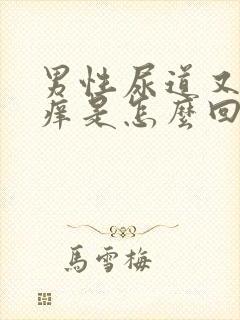 男性尿道又
痒是怎麼回
馬雪梅